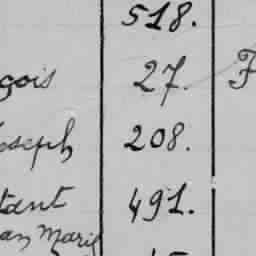 518.
çois 27. F
oseph 208.
tant 491.
an Marie